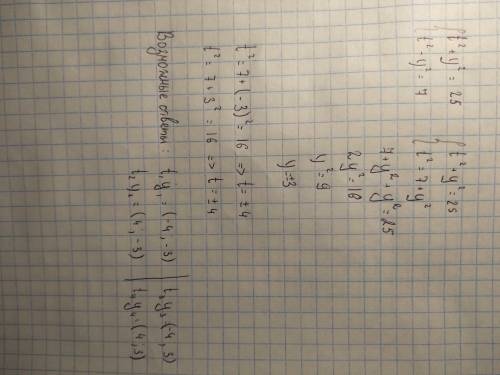 { t² + y² = 25 { t² + y² = 25
{ t² - y² = 7 { t² + 7 + y²
7 + y² + y² = 25
2y² = 18
y² = 9
y = ±3
t² = 7 + (-3)² = 16 => t = ±4
t² = 7 + 3² = 16 => t = ±4
Возможные ответы: t₁ y₁ = (-4, -3) | t₃ y₃ (-4, 3)
t₂ y₂ = (4, -3) | t₄ y₄ = (4; 3)